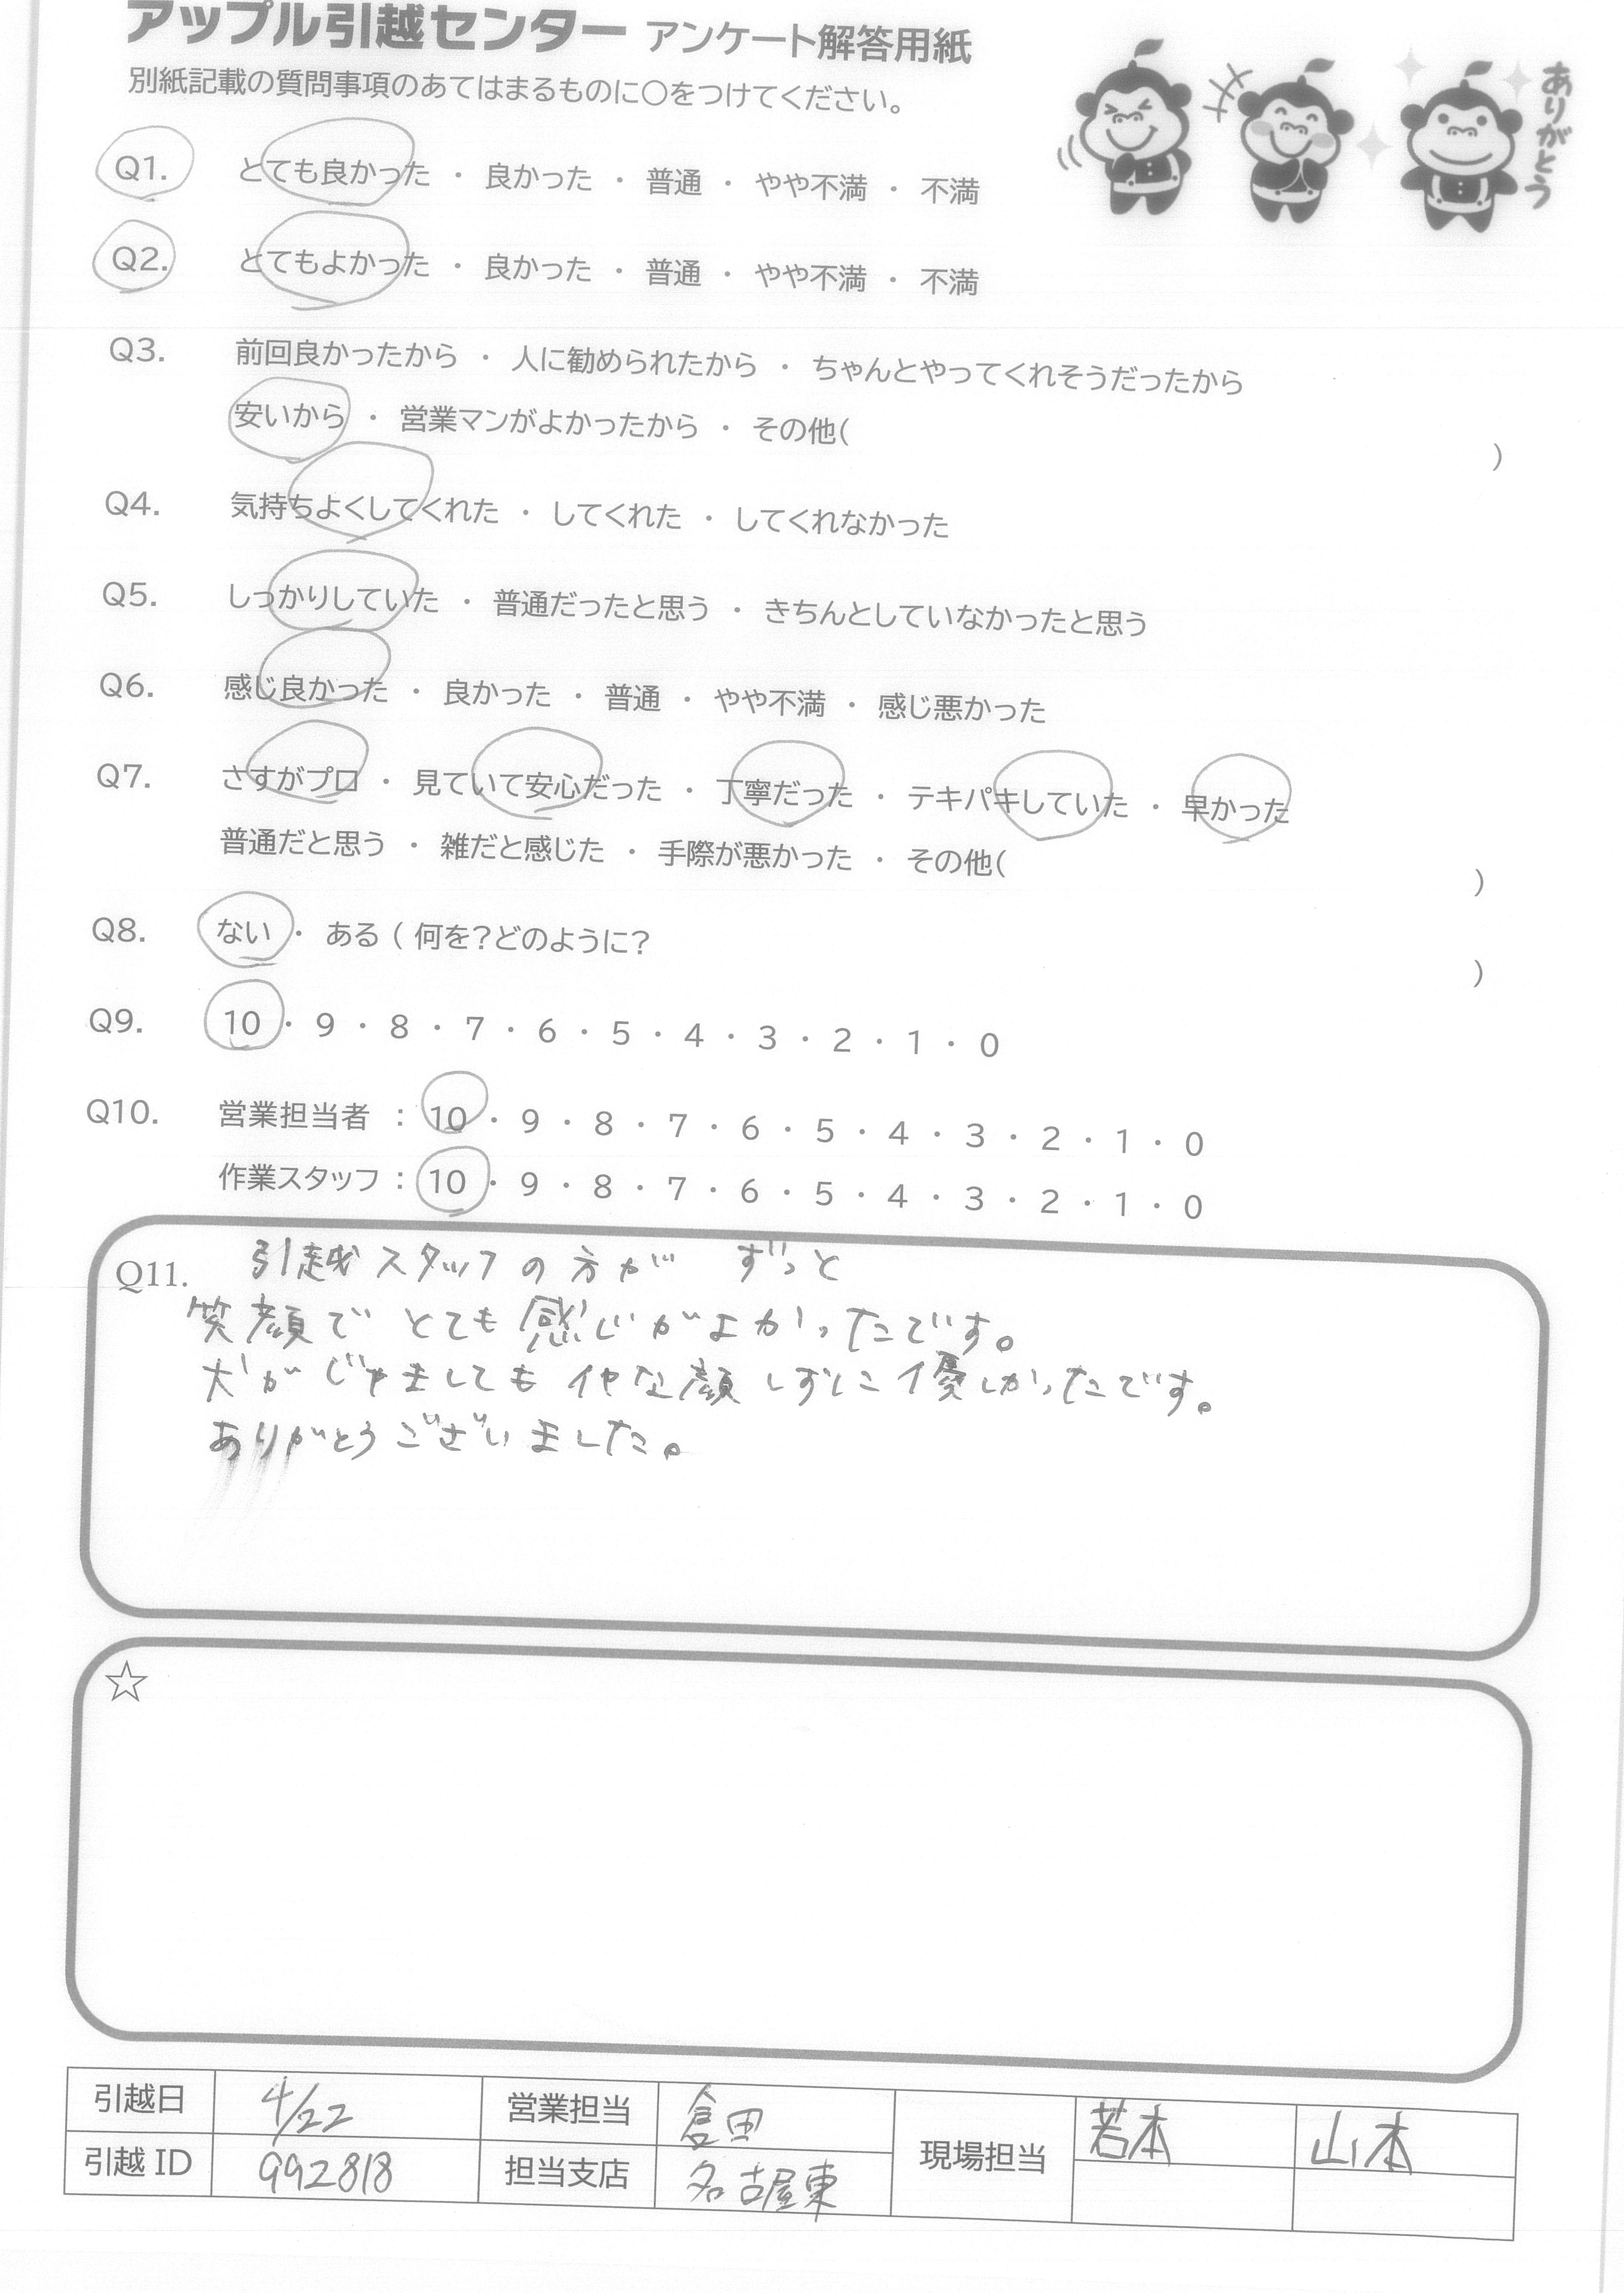 アップル引越センター アンケート解答用紙
別紙記載の質問事項のあてはまるものに○をつけてください。
ありがとう
Q1. とても良かった ・ 良かった ・ 普通 ・ やや不満 ・ 不満
Q2. とてもよかった ・ 良かった ・ 普通 ・ やや不満 ・ 不満
Q3. 前回良かったから ・ 人に勧められたから ・ ちゃんとやってくれそうだったから
安いから ・ 営業マンがよかったから ・ その他( )
Q4. 気持ちよくしてくれた ・ してくれた ・ してくれなかった
Q5. しっかりしていた ・ 普通だったと思う ・ きちんとしていなかったと思う
Q6. 感じ良かった ・ 良かった ・ 普通 ・ やや不満 ・ 感じ悪かった
Q7. さすがプロ ・ 見ていて安心だった ・ 丁寧だった ・ テキパキしていた ・ 早かった
普通だと思う ・ 雑だと感じた ・ 手際が悪かった ・ その他( )
Q8. ない ・ ある ( 何を?どのように? )
Q9. 10 ・ 9 ・ 8 ・ 7 ・ 6 ・ 5 ・ 4 ・ 3 ・ 2 ・ 1 ・ 0
Q10. 営業担当者 : 10 ・ 9 ・ 8 ・ 7 ・ 6 ・ 5 ・ 4 ・ 3 ・ 2 ・ 1 ・ 0
作業スタッフ : 10 ・ 9 ・ 8 ・ 7 ・ 6 ・ 5 ・ 4 ・ 3 ・ 2 ・ 1 ・ 0
Q11. 引越スタッフの方が ずっと
笑顔で とても感じがよかったです。
犬がじゃましてもイヤな顔しずに優しかったです。
ありがとうございました。
☆
引越日 4/22 営業担当 倉田 現場担当 若本 山本
引越 ID 992818 担当支店 名古屋東